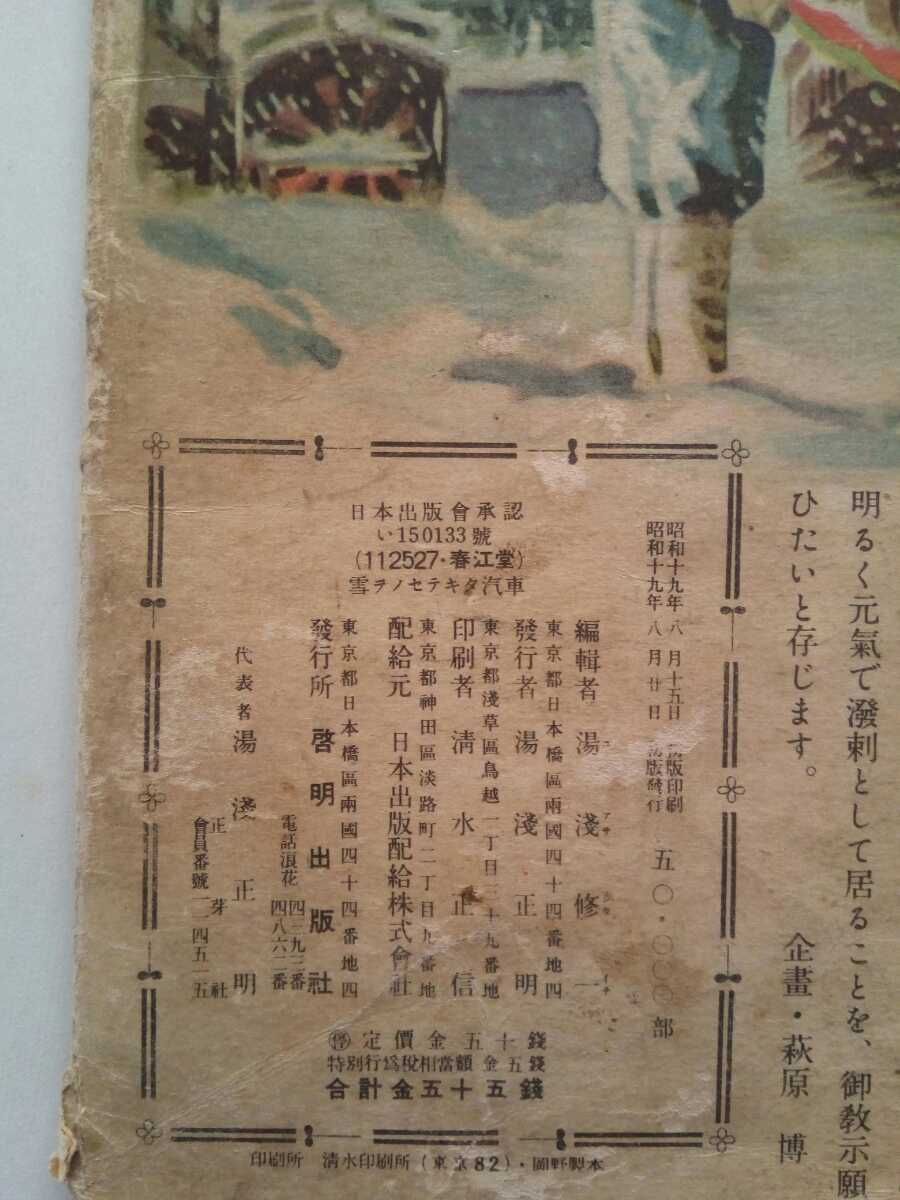 明るく元氣で潑剌として居ることを、御教示願
ひたいと存じます。
企畫・萩原 博
日本出版會承認
い150133號
(112527・春江堂)
雪ヲノセテキタ汽車
昭和十九年八月十五日 版印刷
昭和十九年八月廿日 版發行
五〇・〇〇〇部
編輯者 湯淺修一
東京都日本橋區兩國四十四番地四
發行者 湯淺正明
東京都淺草區鳥越一丁目二十九番地
印刷者 淸水正信
東京都神田區淡路町二丁目九番地
配給元 日本出版配給株式會社
東京都日本橋區兩國四十四番地四
發行所 啓明出版社
電話浪花 四三九二番
四八六二番
代表者 湯淺正明
正芽社
會員番號 一一四五一五
㊡定價金五十錢
特別行爲稅相當額 金五錢
合計金五十五錢
印刷所 淸水印刷所(東京82)・岡野製本